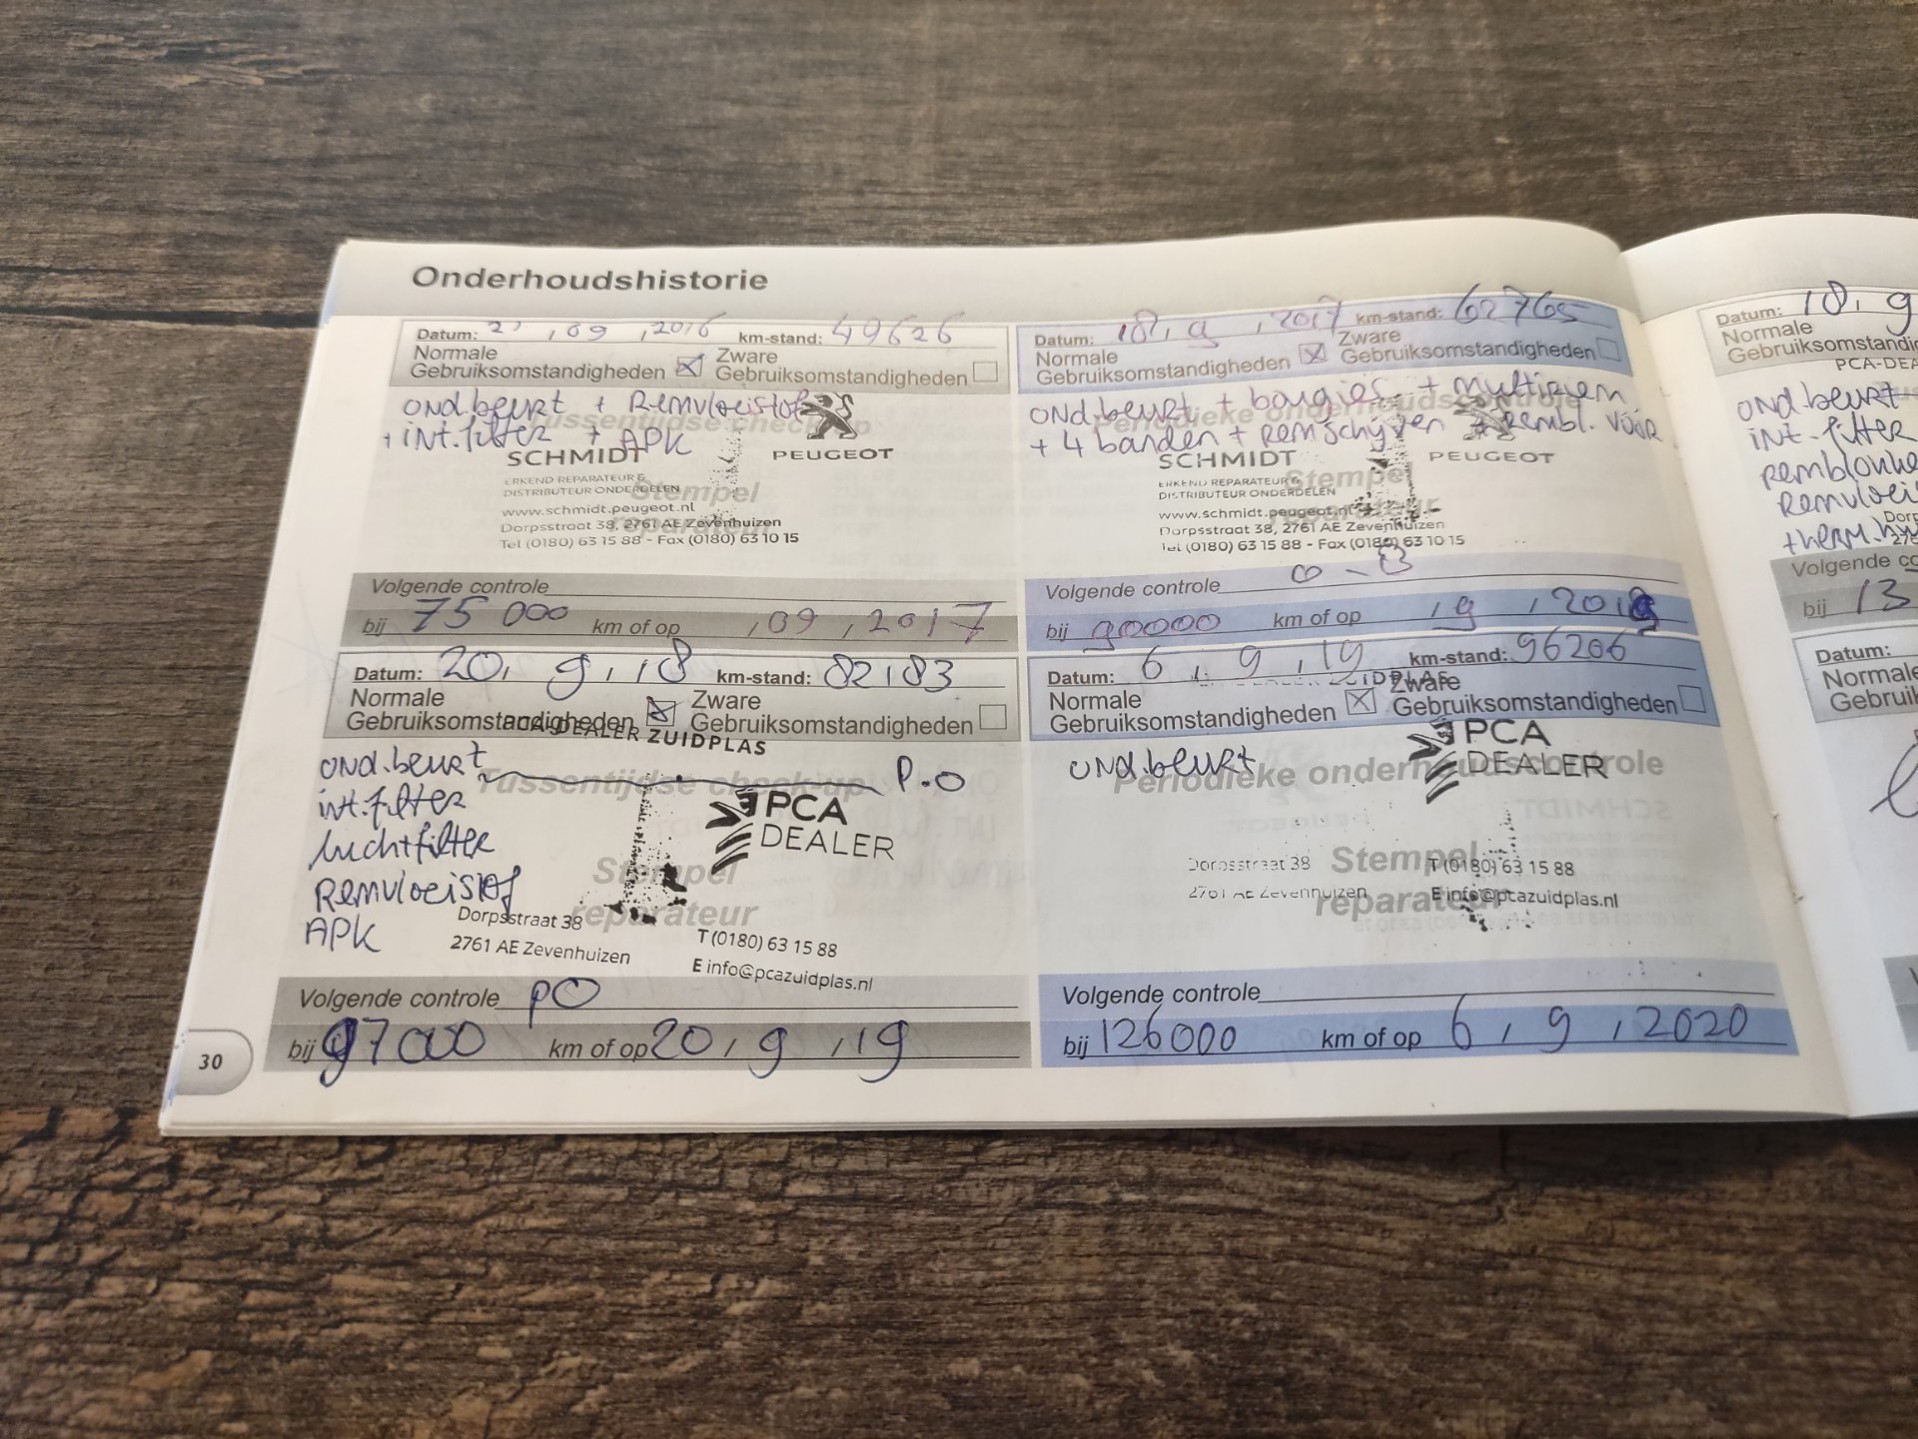 Onderhoudshistorie
Datum: , 09 , 2016 km-stand: 49626
Normale Gebruiksomstandigheden Zware Gebruiksomstandigheden
ond.beurt + Remvloeistof
+ int.filter + APK
Tussentijdse check-up
SCHMIDT PEUGEOT
ERKEND REPARATEUR &
DISTRIBUTEUR ONDERDELEN
Stempel reparateur
www.schmidt.peugeot.nl
Dorpsstraat 38, 2761 AE Zevenhuizen
Tel (0180) 63 15 88 - Fax (0180) 63 10 15
Volgende controle
bij 75 000 km of op , 09 , 2017
Datum: 18, 9 , 2017 km-stand: 62765
Normale Gebruiksomstandigheden Zware Gebruiksomstandigheden
ond.beurt + bougies + multiriem
+ 4 banden + remschijven + rembl. vóór
Periodieke onderhoudscontrole
SCHMIDT PEUGEOT
ERKEND REPARATEUR &
DISTRIBUTEUR ONDERDELEN
Stempel reparateur
www.schmidt.peugeot.nl
Dorpsstraat 38, 2761 AE Zevenhuizen
Tel (0180) 63 15 88 - Fax (0180) 63 10 15
Volgende controle
bij 90000 km of op , 9 , 2018
Datum: 20, 9, 18 km-stand: 82183
Normale Gebruiksomstandigheden Zware Gebruiksomstandigheden
PCA-DEALER ZUIDPLAS
ond.beurt P.O
Tussentijdse check-up
int.filter
luchtfilter
PCA DEALER
Remvloeistof
Stempel reparateur
APK
Dorpsstraat 38
2761 AE Zevenhuizen
T (0180) 63 15 88
E info@pcazuidplas.nl
Volgende controle PO
bij 97000 km of op 20, 9 , 19
Datum: 6 , 9 , 19 km-stand: 96206
Normale Gebruiksomstandigheden Zware Gebruiksomstandigheden
ond.beurt
PCA DEALER
Periodieke onderhoudscontrole
Dorpsstraat 38
2761 AE Zevenhuizen
Stempel reparateur
T (0180) 63 15 88
E info@pcazuidplas.nl
Volgende controle
bij 126000 km of op 6 , 9 , 2020
30
Datum: 18, 9
Normale
PCA-DEA
ond.beurt
int.filter
Volgende
bij 13
Datum: